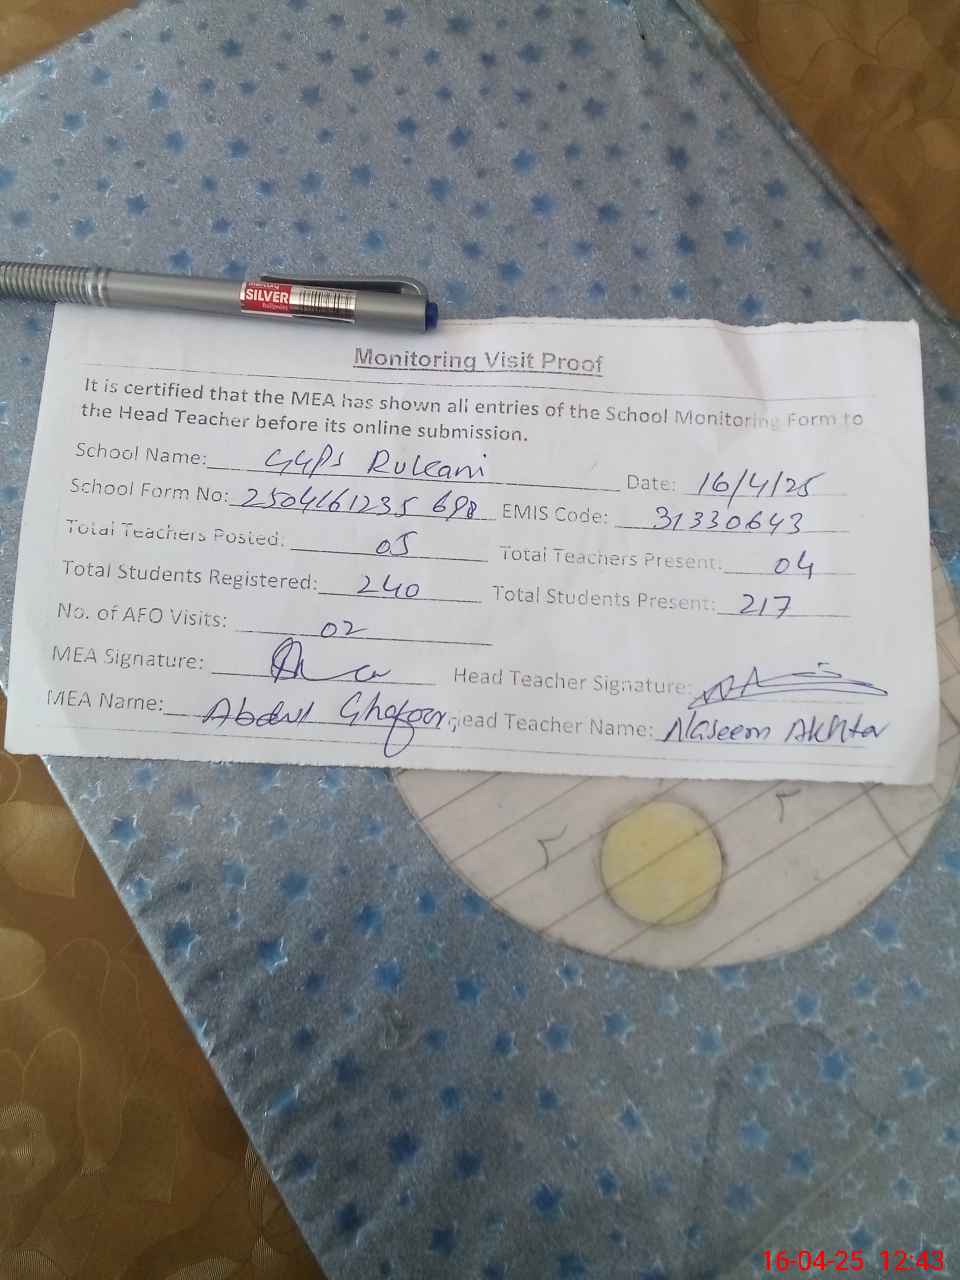 SILVER
Monitoring Visit Proof
It is certified that the MEA has shown all entries of the School Monitoring Form to
the Head Teacher before its online submission.
School Name: GGPS Rukani Date: 16/4/25
School Form No: 2504161235 698 EMIS Code: 31330643
Total Teachers Posted: 05 Total Teachers Present: 04
Total Students Registered: 240 Total Students Present: 217
No. of AEO Visits: 02
MEA Signature: Head Teacher Signature:
MEA Name: Abdul Ghafoor Head Teacher Name: Naseem Akhtar
16-04-25 12:43